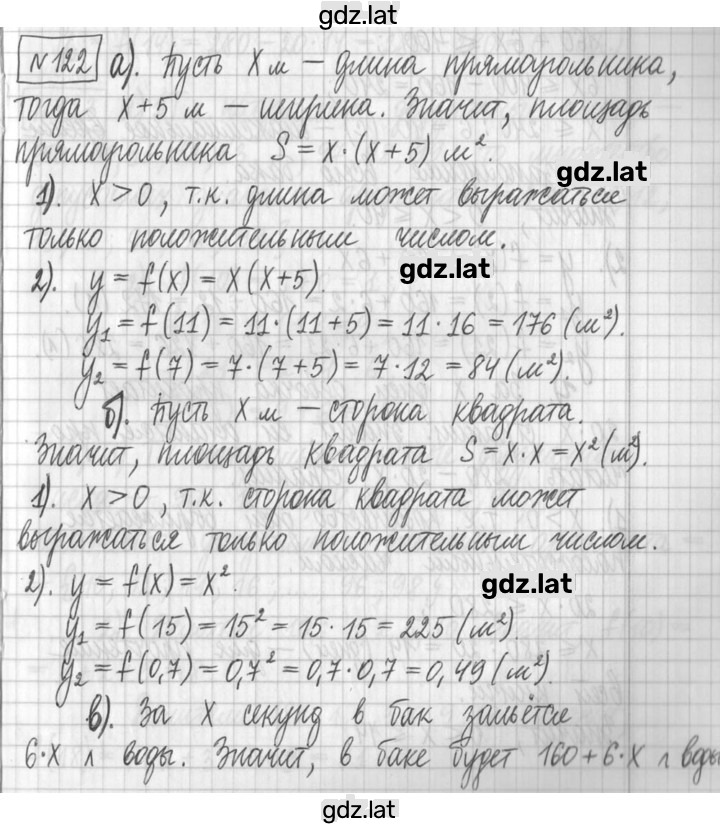 gdz.lat
№122 а). Пусть х м – длина прямоугольника,
тогда х+5 м – ширина. Значит, площадь
прямоугольника S = x·(x+5) м².
gdz.lat
1). х > 0, т.к. длина может выражаться
только положительным числом.
2). y = f(x) = x(x+5).
gdz.lat
y₁ = f(11) = 11·(11+5) = 11·16 = 176 (м²).
y₂ = f(7) = 7·(7+5) = 7·12 = 84 (м²).
б). Пусть х м – сторона квадрата.
Значит, площадь квадрата S = x·x = x² (м²).
1). х > 0, т.к. сторона квадрата может
выражаться только положительным числом.
2). y = f(x) = x².
gdz.lat
y₁ = f(15) = 15² = 15·15 = 225 (м²)
y₂ = f(0,7) = 0,7² = 0,7·0,7 = 0,49 (м²).
в). За х секунд в бак зальётся
6·х л воды. Значит, в баке будет 160+6·х л воды
gdz.lat